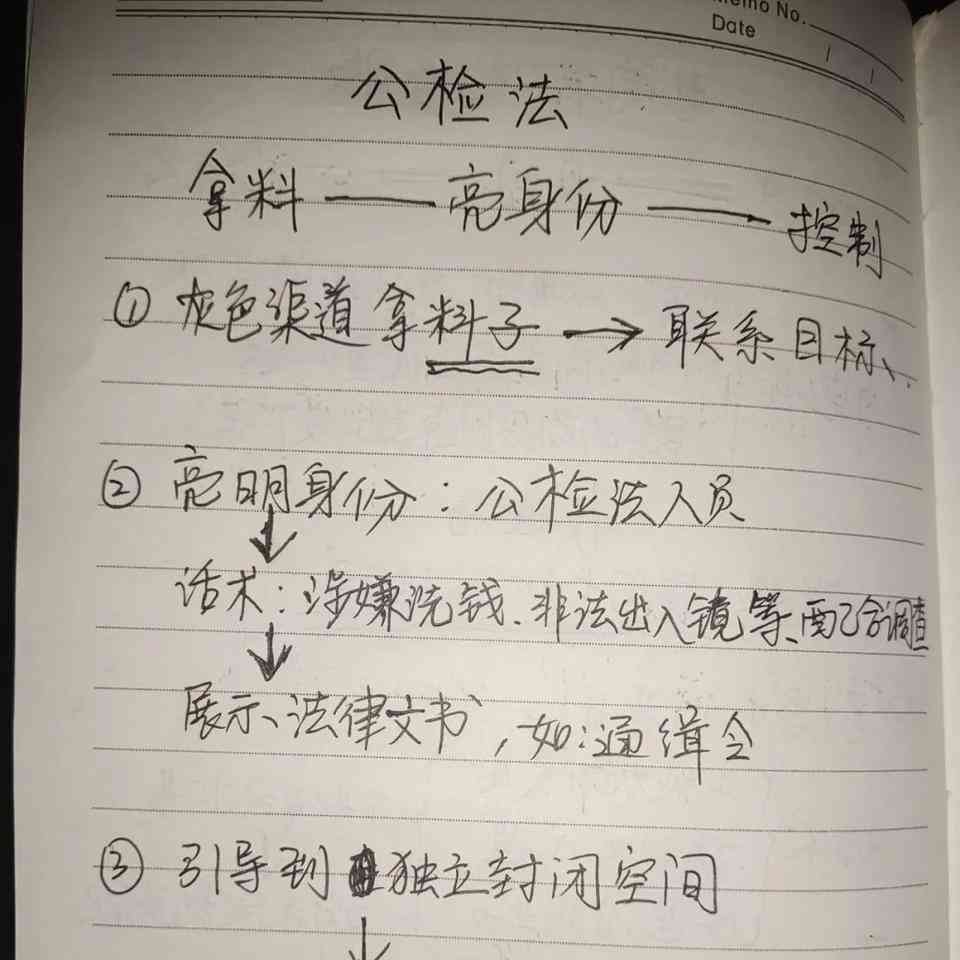 Memo No.
Date / /
公检法
拿料 — 亮身份 — 控制
① 灰色渠道拿料子 → 联系目标、
② 亮明身份：公检法人员
↓
话术：涉嫌洗钱、非法出入镜等、配合调查
↓
展示、法律文书，如：通缉令
③ 引导到独立封闭空间
↓